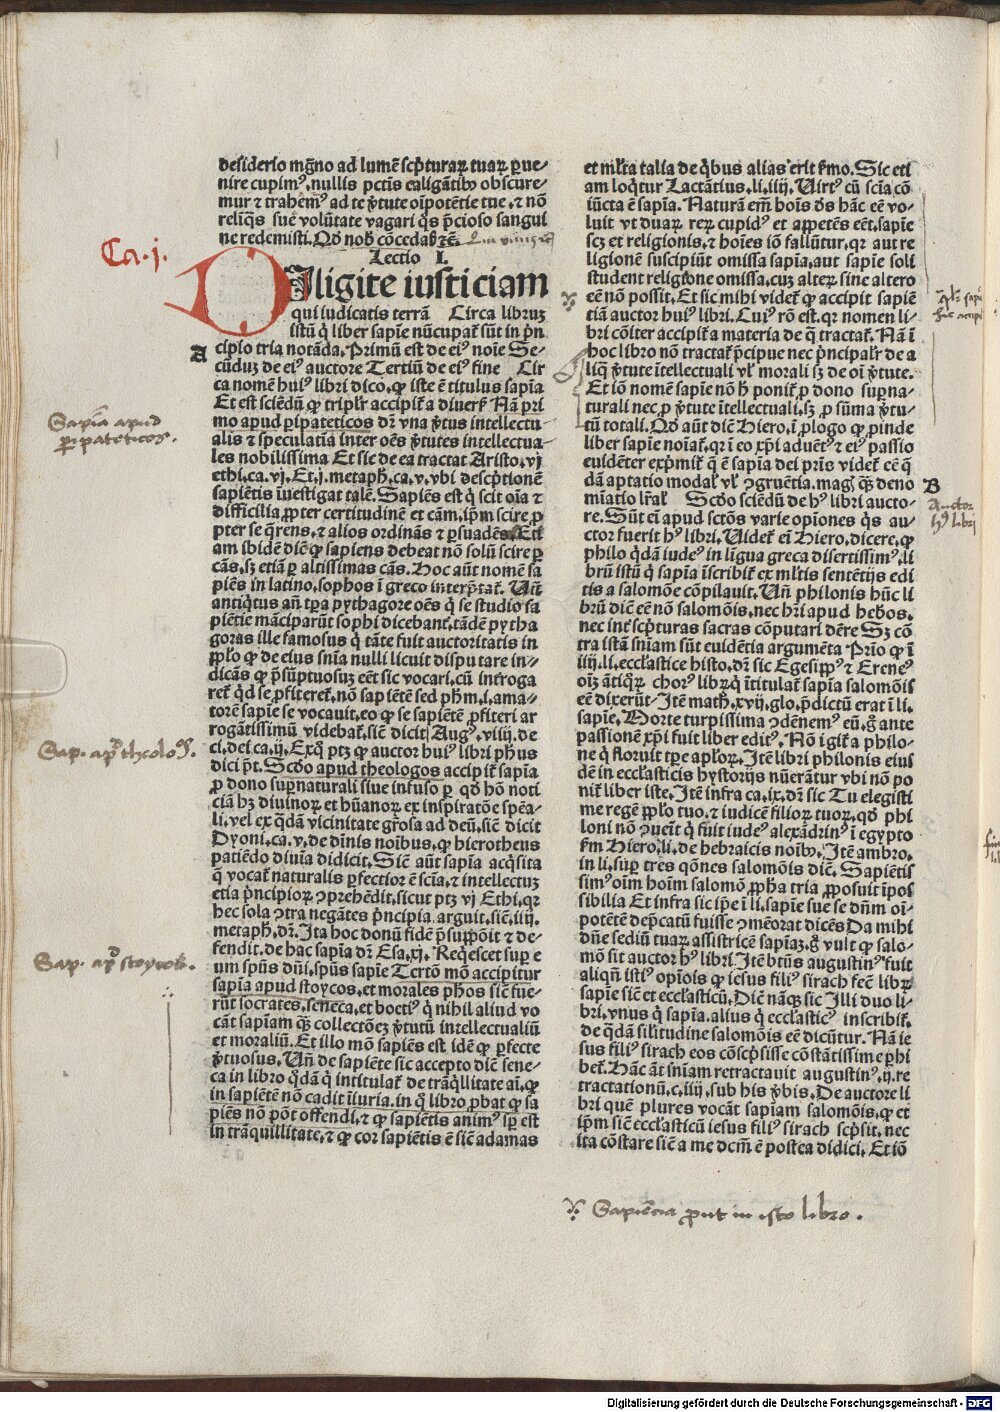 desiderio mg̃no ad lumẽ scp̃turaꝝ tuaꝝ ꝑue⸗
nire cupimꝰ, nullis pctis caligãtibꝰ obscure⸗
mur ⁊ trahẽmꝰ ad te ꝟtute oĩpotẽtie tue, ⁊ nõ
reliñqs sue volũtate vagari q̃s p̃cioso sangui
ne redemisti. Qd̃ nob̃ cõcedas
Lectio I.
Ca. j.
Diligite iusticiam
qui iudicatis terrã Circa libruꝫ
istũ q̃ liber sapiẽ nũcupat̃ sũt in p̃n
A
cipio tria notãda. Primũ est de eiꝰ noĩe Se⸗
cũduꝫ de eiꝰ auctore Tertiũ de eiꝰ fine Cir
ca nomẽ huiꝰ libri dico, ꝙ iste ẽ titulus sapĩa
Et est sciẽdũ ꝙ tripl̃r accipit̃ a diuers̃ Nã pri
mo apud ꝑipateticos dr̃ vna ꝟtus intellectu⸗
alis ⁊ speculatiã inter oẽs ꝟtutes intellectua⸗
les nobilissima Et sic de ea tractat Aristo. vj
ethi. ca. vj. Et. j. metaph̃. ca. v. vbi descp̃tionẽ
sapiẽtis ĩuestigat talẽ. Sapiẽs est q̃ scit oĩa ⁊
difficilia ꝓpter certitudinẽ et cãm, ip̃m scire ꝓ
pter se q̃rens, ⁊ alios ordinãs ⁊ ꝑsuadẽs Eti
am ibidẽ diẽ ꝙ sapiens debeat nõ solũ scire ꝑ
cãs, sꝫ etiã ꝑ altissimas cãs. Hoc aũt nomẽ sa
piẽs in latino, sophos ĩ greco interp̃tat̃. Uñ
antiq̃tus añ tp̃a pythagore oẽs q̃ se studio sa
piẽtie mãciparũt sophi dicebant̃, tãdẽ pytha
goras ille famosus q̃ tãte fuit auctoritatis in
pp̃lo ꝙ de eius sñia nulli licuit disputare in⸗
dicãs ꝙ p̃sũptuosuꝫ eẽt sic vocari, cũ interoga
ret̃ q̃d se ꝓfiteret̃, nõ sapiẽtẽ sed ph̃m. i. ama⸗
torẽ sapiẽ se vocauit, eo ꝙ se sapiẽtẽ ꝓfiteri ar
rogãtissimũ videbat̃, siẽ dicit Augꝰ. viij. de
ci. dei ca. ij. Exq̃ ptꝫ ꝙ auctor huiꝰ libri ph̃us
dici p̃t. Scd̃o apud theologos accipit̃ sapĩa
ꝓ dono sup̃naturali siue infuso ꝑ qd̃ hõ noti
ciã hꝫ diuinoꝝ et hũanoꝝ ex inspiratõe spẽa⸗
li, vel ex q̃dã vicinitate gr̃osa ad deũ, siẽ dicit
Dyoni. ca. v. de dĩnis noĩbus, ꝙ hierotheus
patiẽdo diuĩa didicit. Siẽ aũt sapĩa acq̃sita
q̃ vocat̃ naturalis ꝑfectior ẽ scĩa, ⁊ intellectuꝫ
etia p̃ncipioꝝ ꝯprehẽdit, sicut ptꝫ vj Ethi. qꝛ
hec sola ꝯtra negãtes p̃ncipia arguit, siẽ. iiij.
metaph̃. dr̃. Ita hoc donũ fidẽ p̃suppõit ⁊ de⸗
fendit. de hac sapĩa dr̃ Esa. xj. Req̃escet sup̃ e
um spũs dñi, spũs sapiẽ Tertõ mõ accipitur
sapĩa apud stoycos, et morales ph̃os siẽ fue⸗
rũt socrates, seneca, et boetiꝰ q̃ nihil aliud vo
cãt sapĩam q̃ꝫ collectõeꝫ ꝟtutũ intellectualiũ
et moraliũ. Et illo mõ sapiẽs est idẽ ꝙ ꝑfecte
ꝟtuosus. Uñ de sapiẽte sic accepto diẽ sene⸗
ca in libro q̃dã q̃ intitulat̃ de trãq̃llitate aĩ. ꝙ
in sapiẽtẽ nõ cadit iĩuria. in q̃ libro ꝓbat ꝙ sa
piẽs nõ põt offendi, ⁊ ꝙ sapiẽtis animꝰ sp̃ est
in trãquillitate, ⁊ ꝙ cor sapiẽtis ẽ siẽ adamas
et ml̃ta talia de q̃bus alias erit s̃mo. Sic eti
am loq̃tur Lactãtius. li. iiij. Uirtꝰ cũ scĩa cõ
iũcta ẽ sapĩa. Naturã em̃ boĩs ds̃ hãc eẽ vo⸗
luit vt duaꝝ reꝝ cupidꝰ et appetẽs eẽt, sapiẽ
scꝫ et religionis, ⁊ hoĩes iõ fallũtur, qꝛ aut re
ligionẽ suscipiũt omissa sapĩa, aut sapiẽ soli
student religiõne omissa, cuꝫ alteꝝ sine altero
eẽ nõ possit. Et sic mihi videt̃ ꝙ accipit sapiẽ
tiã auctor huiꝰ libri. Cuiꝰ rõ est. qꝛ nomen li⸗
bri cõiter accipit̃ a materia de q̃ tractat̃. Nã ĩ
hoc libro nõ tractat̃ p̃cipue nec p̃ncipal̃r de a
liq̃ ꝟtute ĩtellectuali vl̃ morali sꝫ de oĩ ꝟtute.
Et iõ nomẽ sapiẽ nõ h̃ ponit̃ ꝓ dono sup̃na⸗
turali nec ꝓ ꝟtute ĩtellectuali, sꝫ ꝓ sũma ꝟtu⸗
tũ totali. Qd̃ aũt diẽ Hiero. ĩ plogo ꝙ pinde
liber sapiẽ noĩat̃, qꝛ ĩ eo xp̃i aduẽtꝰ ⁊ eiꝰ passio
euidẽter exp̃mit̃ q̃ ẽ sapĩa dei pr̃is videt̃ eẽ q̃
dã aptatio modal̃ vl̃ ꝯgruẽtia. mag̃ q̃ꝫ deno
miatio lr̃al̃ Scd̃o sciẽdũ de hꝰ libri aucto⸗
B
re. Sũt eĩ apud sctõs varie opiones q̃s au⸗
ctor fuerit hꝰ libri. Uidet̃ eĩ Hiero. dicere, ꝙ
philo q̃dã iudeꝰ in lĩgua greca disertissimꝰ, li
brũ istũ q̃ sapĩa ĩscribit̃ ex ml̃tis sentẽtijs edi
tis a salomõe cõpilauit. Uñ philonis hũc li
brũ diẽ eẽ nõ salomõis, nec hr̃i apud heb̃os,
nec int̃ scp̃turas sacras cõputari dẽre Sꝫ cõ
tra istã sniam sũt euidẽtia argumẽta Pr̃io ꝙ ĩ
iiij. li. eccl̃astice histo. dr̃ sic Egesippꝰ ⁊ Ereneꝰ
oĩꝫ ãtiq̃ꝝ choꝝ libꝝ q̃ ĩtitulat̃ sapĩa salomõis
eẽ dixerũt. Itẽ math̃. xvij. glo. p̃dictũ erat ĩ li.
sapiẽ. Morte turpissima ꝯdẽnemꝰ eũ. g̃ ante
passionẽ xp̃i fuit liber editꝰ. Nõ igit̃ a philo⸗
ne q̃ floruit tp̃e apl̃oꝝ. Itẽ libri philonis eius
dẽ in eccl̃asticis hystorijs nũerãtur vbi nõ po
nit̃ liber iste. Itẽ infra ca. ix. dr̃ sic Tu elegisti
me regẽ pp̃lo tuo, ⁊ iudicẽ filioꝝ tuoꝝ, qd̃ phi
loni nõ ꝯueĩt q̃ fuit iudeꝰ alexãdrinꝰ ĩ egypto
s̃m Hiero. li. de hebraicis noĩbꝰ. Itẽ ambro.
in li. sup̃ tres q̃ones salomõis diẽ. Sapiẽtis
simꝰ oĩm hoĩm salomõ, ꝓph̃a tria ꝓposuit ĩpos
sibilia Et infra sic ip̃e ĩ li. sapiẽ sue se dñm oĩ⸗
potẽtẽ dep̃catũ fuisse ꝯmẽorat dicẽs Da mihi
dñe sediũ tuaꝝ assistricẽ sapĩaꝫ. g̃ vult ꝙ salo⸗
mõ sit auctor hꝰ libri. Itẽ btũs augustinꝰ fuit
aliqñ istiꝰ opĩois ꝙ iesus filiꝰ sirach fec̃ libꝝ
sapiẽ siẽ et eccl̃asticũ. Diẽ nãqꝫ sic Illi duo li⸗
bri, vnus q̃ sapĩa. alius q̃ eccl̃asticꝰ inscribit̃.
de q̃dã sil̃itudine salomõis eẽ dicũtur. Nã ie
sus filiꝰ sirach eos cõscp̃sisse cõstãtissime ꝑhi
bet̃. Hãc ãt sñiam retractauit augustinꝰ. ij. re
tractationũ. c. iiij. sub his ꝟbis. De auctore li
bri quẽ plures vocãt sapiam salomõis, ꝙ et
ip̃m siẽ eccl̃asticũ iesus filiꝰ sirach scp̃sit, nec
ita cõstare siẽ a me dcm̃ ẽ postea didici. Et iõ
Sapiẽa apud
ꝑipateticos.
Sap. apd̃ theolog̃.
Sap. apd̃ stoycos.
Auctor
hꝰ libri
Sapiẽcia prout in isto libro.
Digitalisierung gefördert durch die Deutsche Forschungsgemeinschaft - DFG